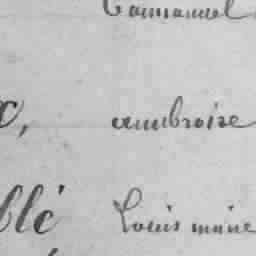 Emmanuel
x, ambroise
blé Louis marie